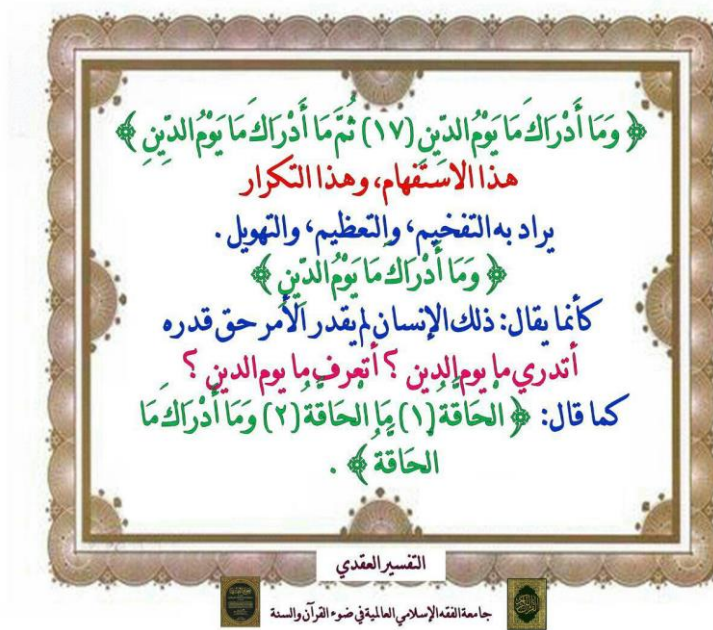 ﴿ وَمَا أَدْرَاكَ مَا يَوْمُ الدِّينِ (١٧) ثُمَّ مَا أَدْرَاكَ مَا يَوْمُ الدِّينِ ﴾
هذا الاستفهام، وهذا التكرار
يراد به التفخيم، والتعظيم، والتهويل .
﴿ وَمَا أَدْرَاكَ مَا يَوْمُ الدِّينِ ﴾
كأنما يقال: ذلك الإنسان لم يقدر الأمر حق قدره
أتدري ما يوم الدين ؟ أتعرف ما يوم الدين ؟
كما قال: ﴿ الْحَاقَّةُ (١) مَا الْحَاقَّةُ (٢) وَمَا أَدْرَاكَ مَا
الْحَاقَّةُ ﴾ .
التفسير العقدي
جامعة الفقه الإسلامي العالمية في ضوء القرآن والسنة